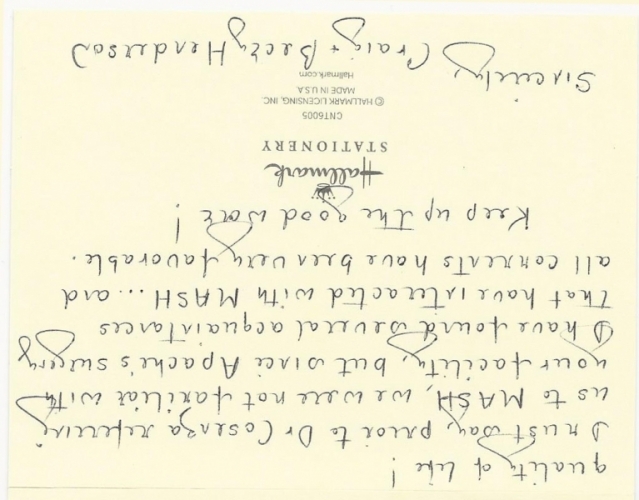 quality of life!
I must say, prior to Dr Cosenza referring
us to MASH, we were not familiar with
your facility, but since Apache's surgery
I have found several acquaintances
that have interacted with MASH ... and
all comments have been very favorable.
Keep up the good work!
Hallmark
STATIONERY
CNT6005
© HALLMARK LICENSING, INC.
MADE IN U.S.A.
Hallmark.com
Sincerely, Craig + Becky Henderson